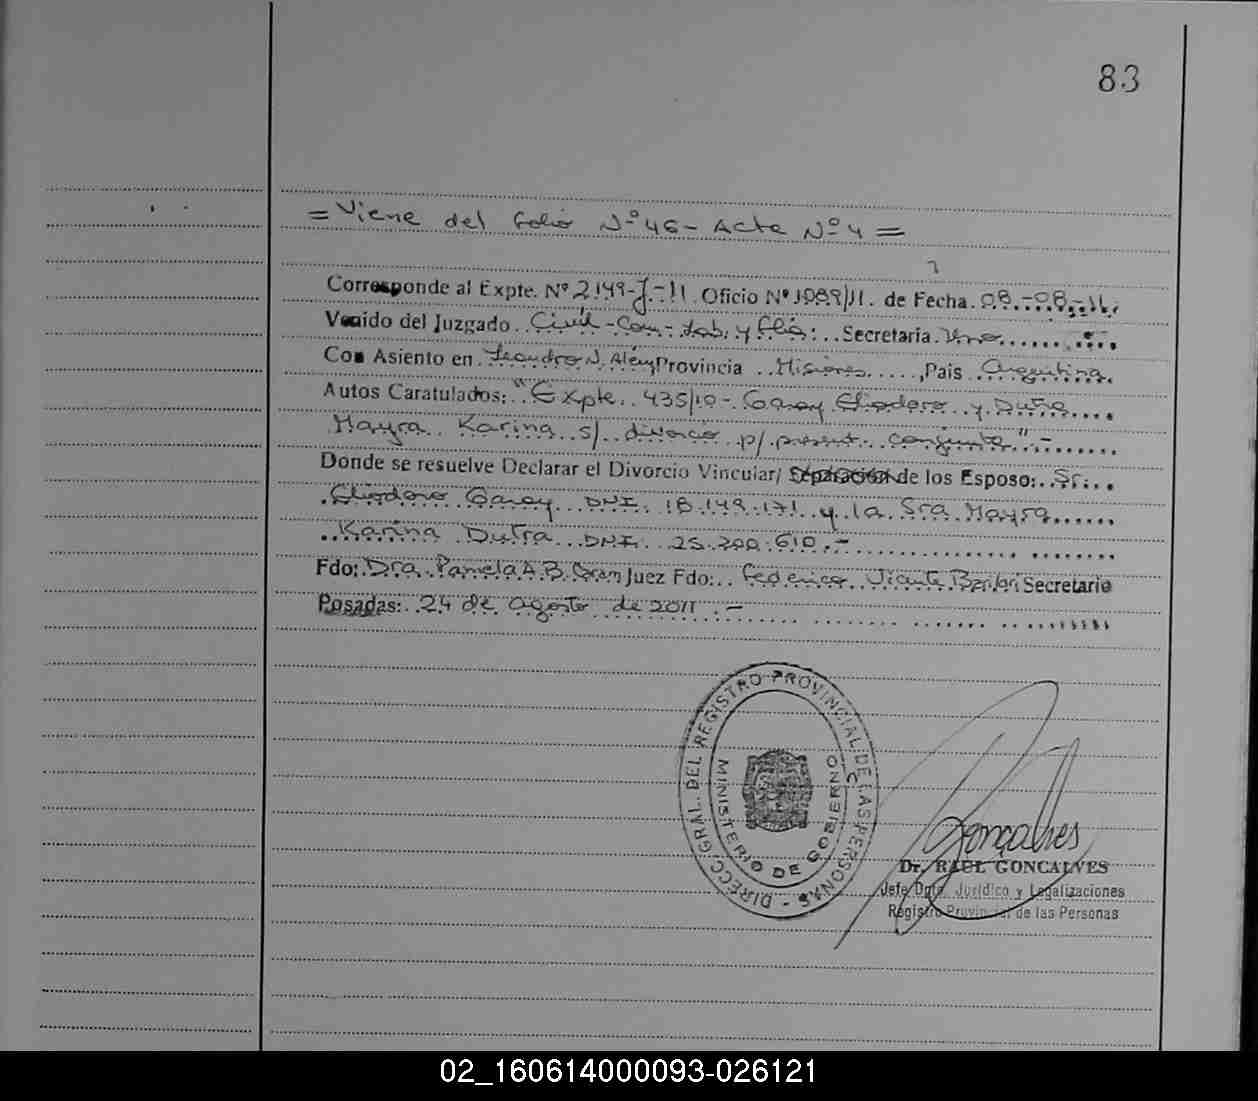 83
= Viene del folio Nº 46 - Acta Nº 4 =
Corresponde al Expte. Nº 2149-J-11. Oficio Nº 1089/11. de Fecha. 08.-08.-11.
Venido del Juzgado. Civil-Com-Lab. y flia: Secretaria. Uno
Con Asiento en Leandro N. Alem Provincia Misiones, Pais Argentina.
Autos Caratulados: "Expte. 435/10 - Garay Eliodoro y Dutra
Mayra Karina s/ divorcio p/ present. conjunta".-
Donde se resuelve Declarar el Divorcio Vincular/ Separacion de los Esposo: Sr.
Eliodoro Garay DNI. 18.149.171 y la Sra Mayra
Karina Dutra DNI. 25.200.610.-
Fdo: Dra. Pamela A.B. Juez Fdo: Federico Vicente Secretario
Posadas: 24 de agosto de 2011.-
DIRECC. GRAL. DEL REGISTRO PROVINCIAL DE LAS PERSONAS -
MINISTERIO DE GOBIERNO
Gonçalves
Dr. RAUL GONCALVES
Jefe Dpto. Jurídico y Legalizaciones
Registro Provincial de las Personas
02_160614000093-026121